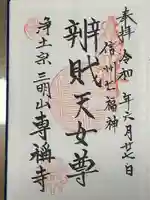 奉拝 令和 年六月廿七日
信州七福神
辨財天女尊
浄土宗 三明山 專稱寺